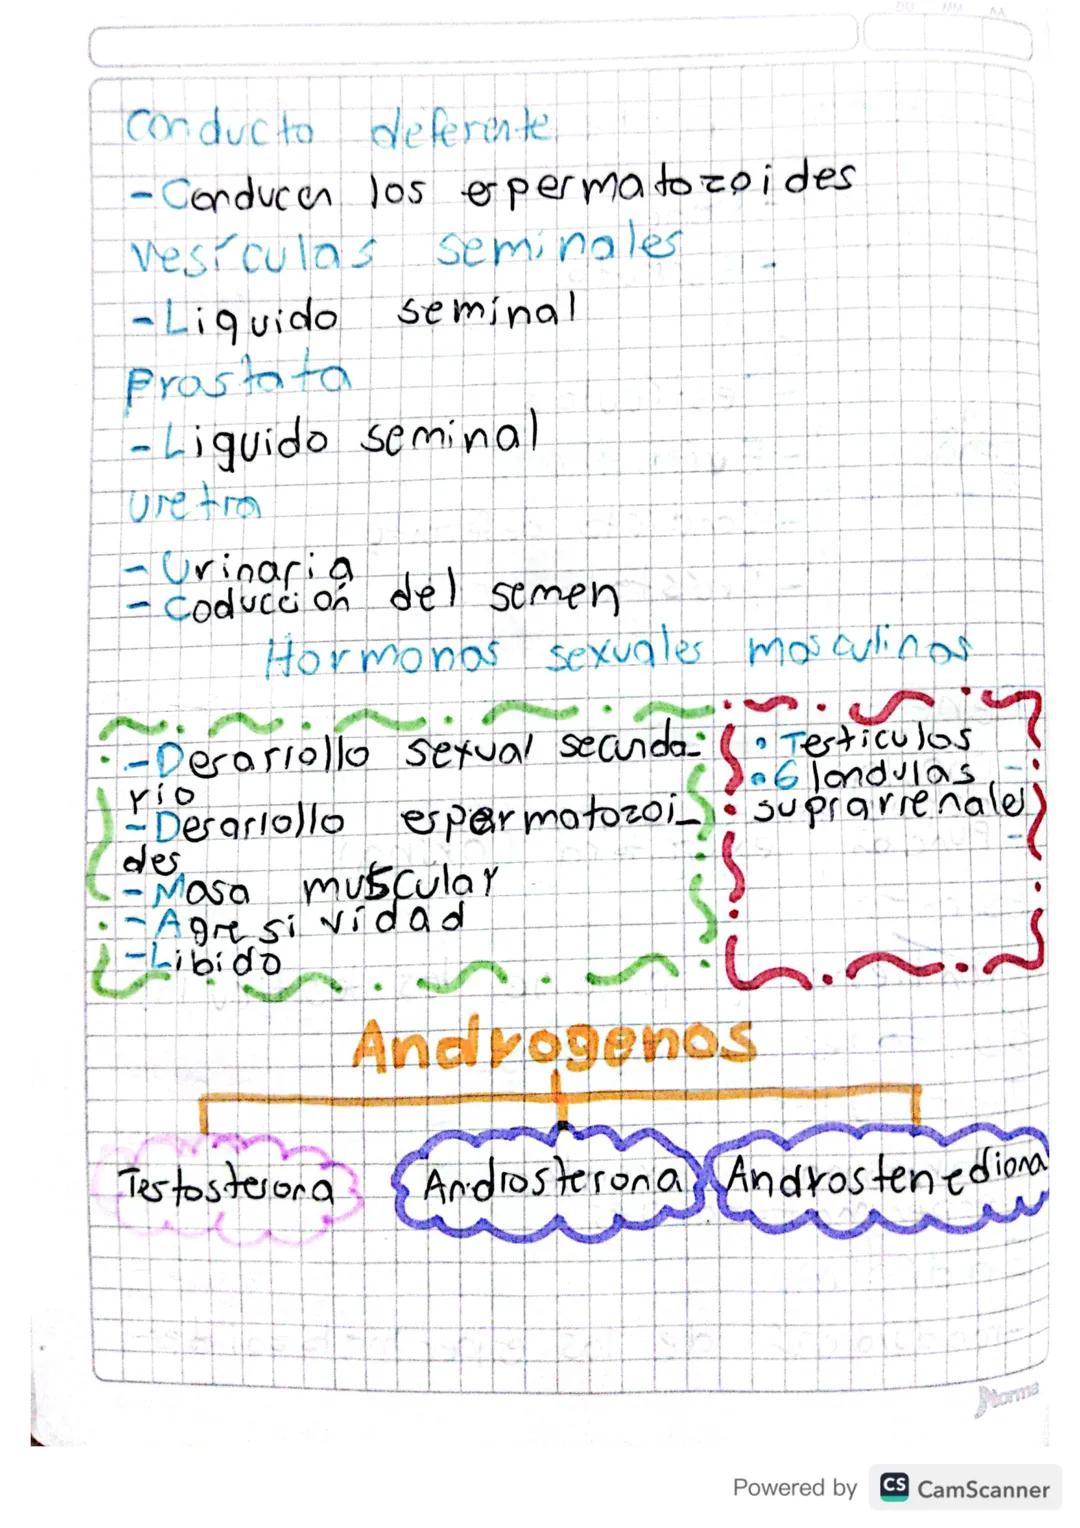 DD MM AA
Conducto deferente
-Conducen los espermatozoides
Vesículas seminales
-Liquido seminal
Prostata
-Liquido seminal
Uretra
-Urinaria
-Coducción del semen
Hormonas sexuales masculinas
-Desarrollo sexual secunda-
rio
-Desarrollo espermatozoi-
des
-Masa muscular
-Agresividad
-Libido
• Testiculos
• Glandulas
suprarrenales
Androgenos
Testosterona
Androsterona
Androstenediona
Norma
Powered by CS CamScanner